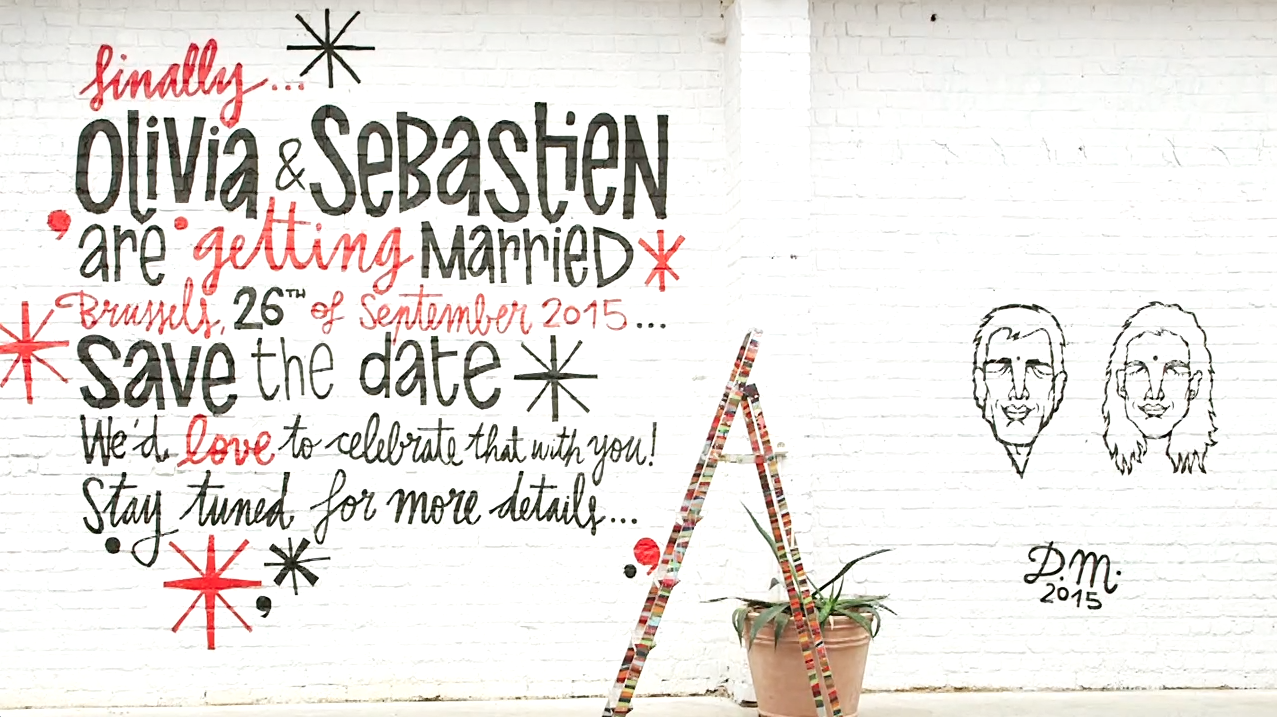 finally...
Olivia & Sebastien
are getting Married
Brussels, 26TH of September 2015...
save the date
We'd love to celebrate that with you!
Stay tuned for more details...
D.M.
2015